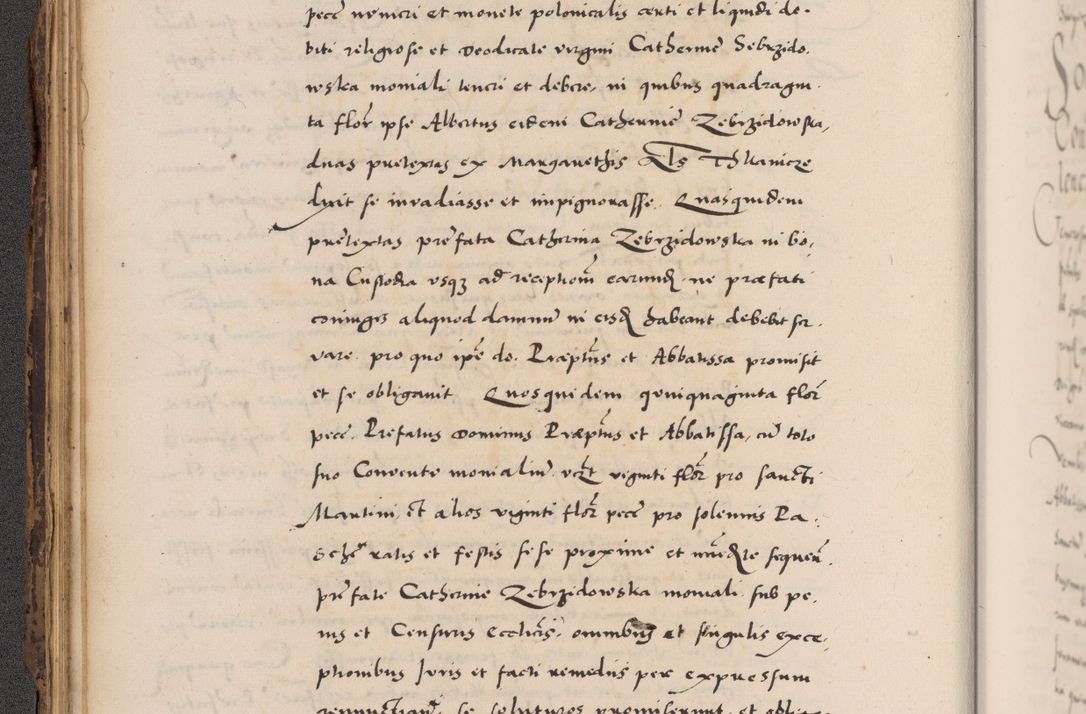 pece numeri et monete polonicalis certi et liquidi de-
biti religiose et Deodicate virgini Catherine Sebrzido-
wska moniali teneri et debere, in quibus quadragin-
ta flor ipse Albertus eidem Catherine Zebrzidowska,
duas pretextas ex Margarethis Als Tkanicze
dixit se invadiasse et impignorasse. Quasquidem
pretextas prefata Catherina Zebrzidowska in bo-
na Custodia usq3 ad reception earund ne præfati
coniuges aliquod damnu in eisd habeant debebit ser-
vare pro quo ipse do. Præptus et Abbatissa promisit
et se obligavit Quosquidem quinquaginta flor
pece. Prefatus Dominus Præptus et Abbatissa, cu toto
suo Convente monialiu vczt viginti flor pro sancti
Martini, et alios viginti flor pece pro solemnis Pa-
sche ratis et festis sese proxime et immediate sequen.
prefate Catherine Zebrzidowska moniali sub pe-
nis et Censuris Ecclicis. omnibus et singulis exce-
ptionibus Juris et facti remediis per expressum
se soluturos promiserunt et